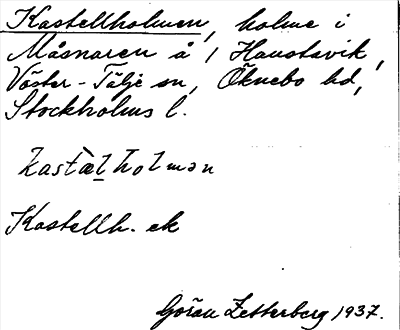 Kastellholmen, holme i
Måsnaren å / Hanstavik,
Väster-Tälje sn, Öknebo hd,
Stockholms l.
kastælholmən
Kastellh. ek
Göran Zetterberg 1937.